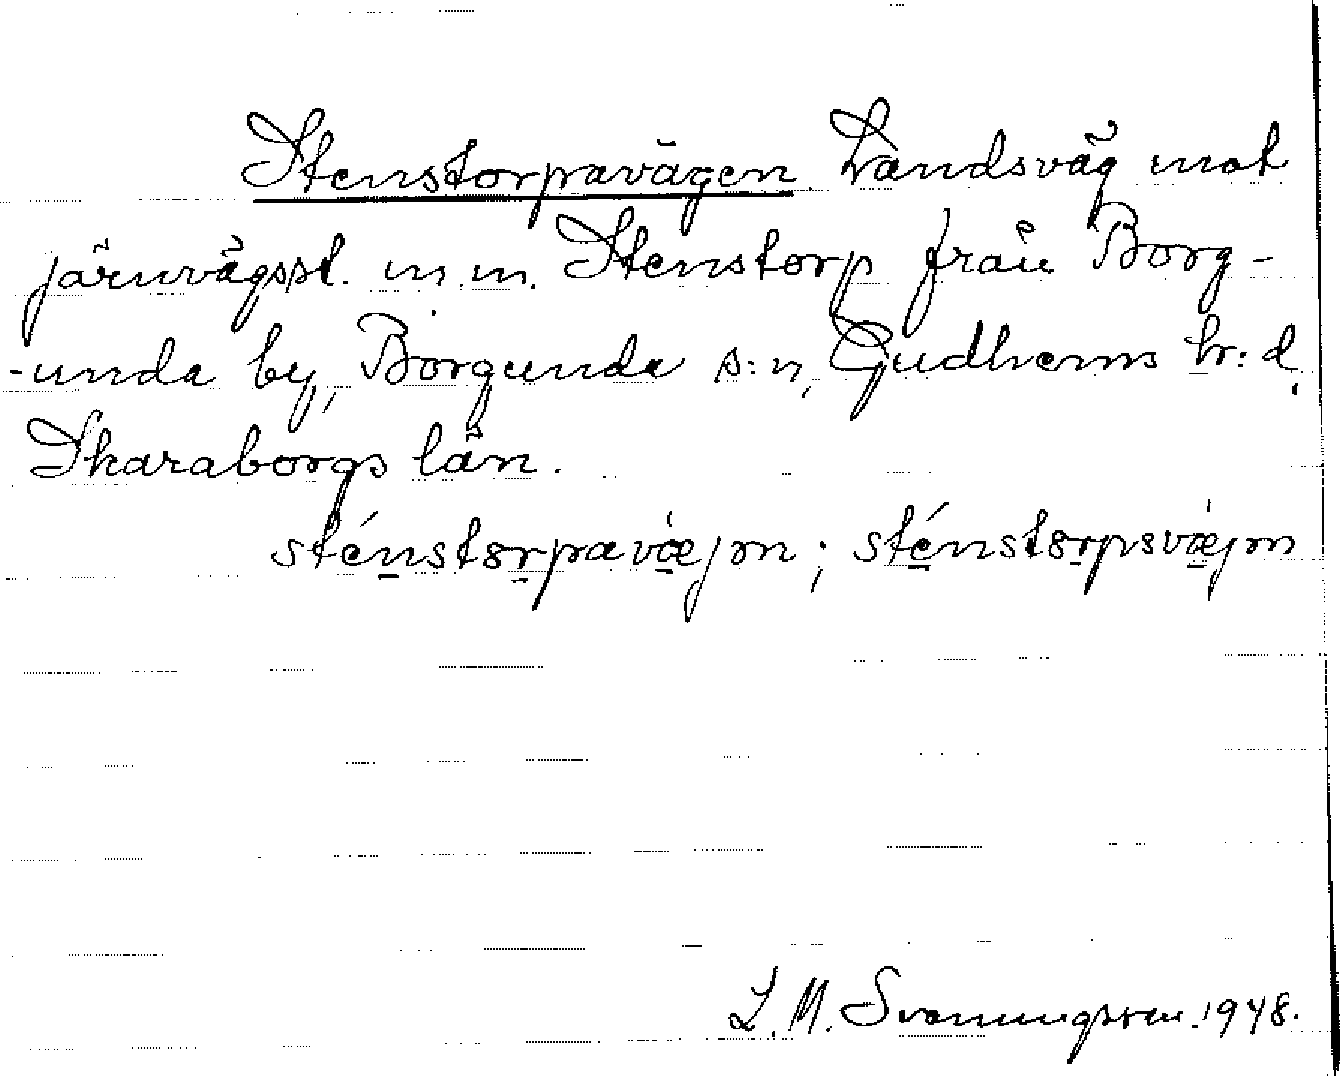 Stenstorpavägen. Landsväg mot
järnvägsst. m.m. Stenstorp från Borg-
-unda by, Borgunda s:n, Gudhems hr:d,
Skaraborgs län.
sténstɞrpavæ̀jɷn; sténstɞrpsvæ̀jɷn
L. M. Svenungsson. 1948.